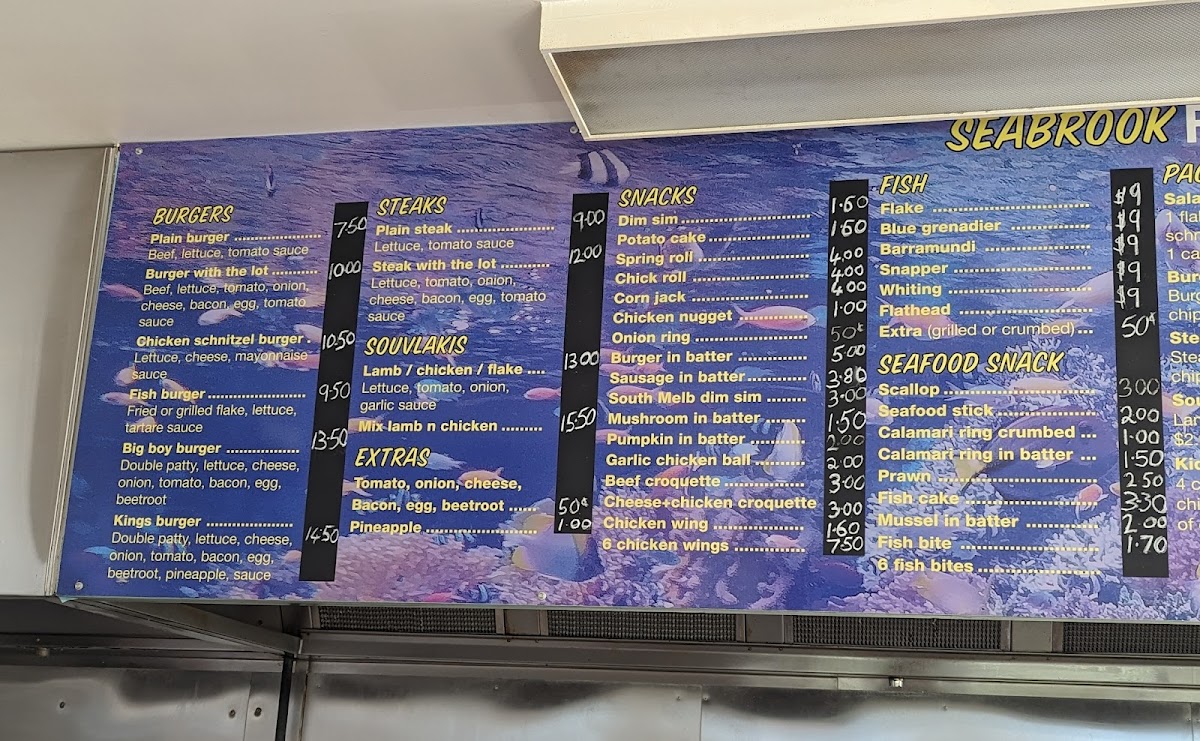 SEABROOK
BURGERS
Plain burger 7.50
Beef, lettuce, tomato sauce
Burger with the lot 10.00
Beef, lettuce, tomato, onion,
cheese, bacon, egg, tomato
sauce
Chicken schnitzel burger 10.50
Lettuce, cheese, mayonnaise
sauce
Fish burger 9.50
Fried or grilled flake, lettuce,
tartare sauce
Big boy burger 13.50
Double patty, lettuce, cheese,
onion, tomato, bacon, egg,
beetroot
Kings burger 14.50
Double patty, lettuce, cheese,
onion, tomato, bacon, egg,
beetroot, pineapple, sauce
STEAKS
Plain steak 9.00
Lettuce, tomato sauce
Steak with the lot 12.00
Lettuce, tomato, onion,
cheese, bacon, egg, tomato
sauce
SOUVLAKIS
Lamb / chicken / flake 13.00
Lettuce, tomato, onion,
garlic sauce
Mix lamb n chicken 15.50
EXTRAS
Tomato, onion, cheese,
Bacon, egg, beetroot 50¢
Pineapple 1.00
SNACKS
Dim sim 1.60
Potato cake 1.60
Spring roll 4.00
Chick roll 4.00
Corn jack 4.00
Chicken nugget 1.00
Onion ring 50¢
Burger in batter 5.00
Sausage in batter 3.80
South Melb dim sim 3.00
Mushroom in batter 1.50
Pumpkin in batter 2.00
Garlic chicken ball 2.00
Beef croquette 3.00
Cheese+chicken croquette 3.00
Chicken wing 1.60
6 chicken wings 7.50
FISH
Flake $9
Blue grenadier $9
Barramundi $9
Snapper $9
Whiting $9
Flathead
Extra (grilled or crumbed) 50¢
SEAFOOD SNACK
Scallop 3.00
Seafood stick 2.00
Calamari ring crumbed 1.00
Calamari ring in batter 1.50
Prawn 2.50
Fish cake 3.30
Mussel in batter 2.00
Fish bite 1.70
6 fish bites